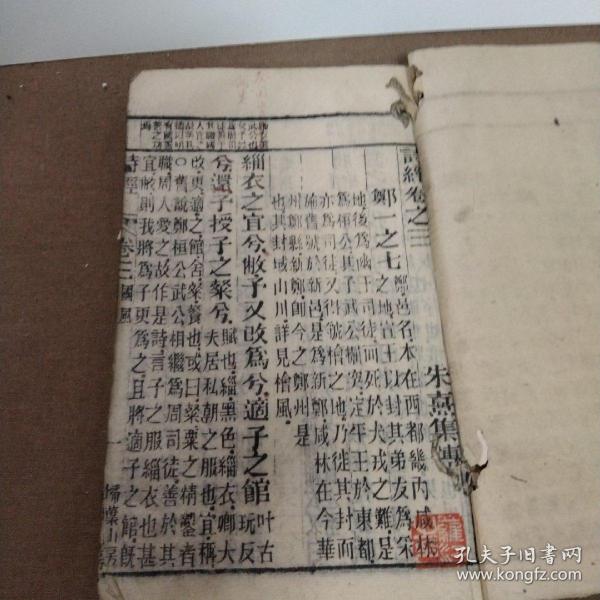 詩經卷之三
朱熹集傳
鄭一之七
鄭邑名本在西都畿內咸林
之地宣王以封其弟友為采
地後為幽王司徒而死於犬戎之難是
為桓公其子武公掘突定平王於東都
亦為司徒又得虢檜之地乃徙其封而
施舊號於新邑是為新鄭咸林在今華
州鄭縣新鄭即今之鄭州是
也其封域山川詳見檜風
緇衣之宜兮敝予又改為兮適子之館
叶古
玩反
兮還予授子之粲兮
賦也緇黑色緇衣卿大
夫居私朝之服也宜稱
改更適之館舍粲餐也或曰粲粟之精鑿者
〇舊說鄭桓公武公相繼為周司徒善於其
職周人愛之故作是詩言子之服緇衣也甚
宜敝則我將為子更為之且將適子之館既
詩經
卷三
國風
一
掃葉山房
孔夫子旧书网
www.kongfz.com